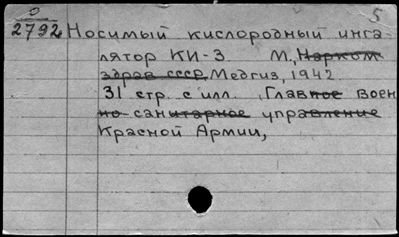 0 5
2792 Носимый кислородный инга
лятор КИ-3 М., Нарком
здрав СССР, Медгиз, 1942
31 стр. с илл. Главное воен
но санитарное управление
Красной Армии,